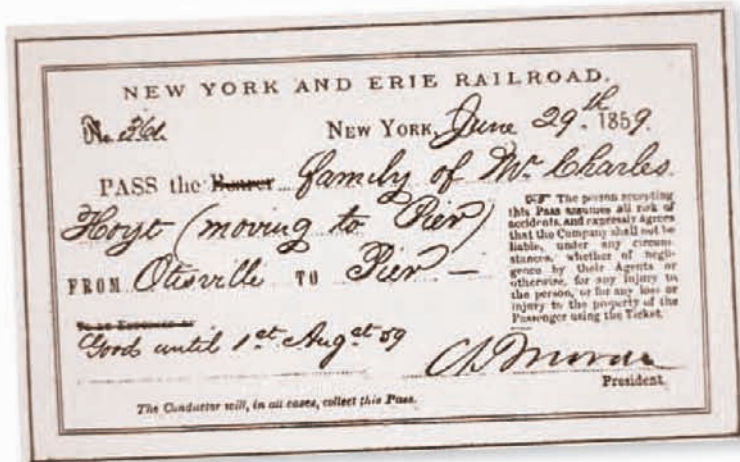 NEW YORK AND ERIE RAILROAD.
No.
NEW YORK, June 29.th 1859.
PASS the Bearer family of Mr. Charles
Hoyt (moving to Pier)
FROM Otisville TO Pier —
☞ The person accepting
this Pass assumes all risk of
accidents, and expressly agrees
that the Company shall not be
liable, under any circum-
stances, whether of negli-
gence by their Agents or
otherwise, for any injury to
the person, or for any loss or
injury to the property of the
Passenger using the Ticket.
Good until 1st Augst 59
President.
The Conductor will, in all cases, collect this Pass.